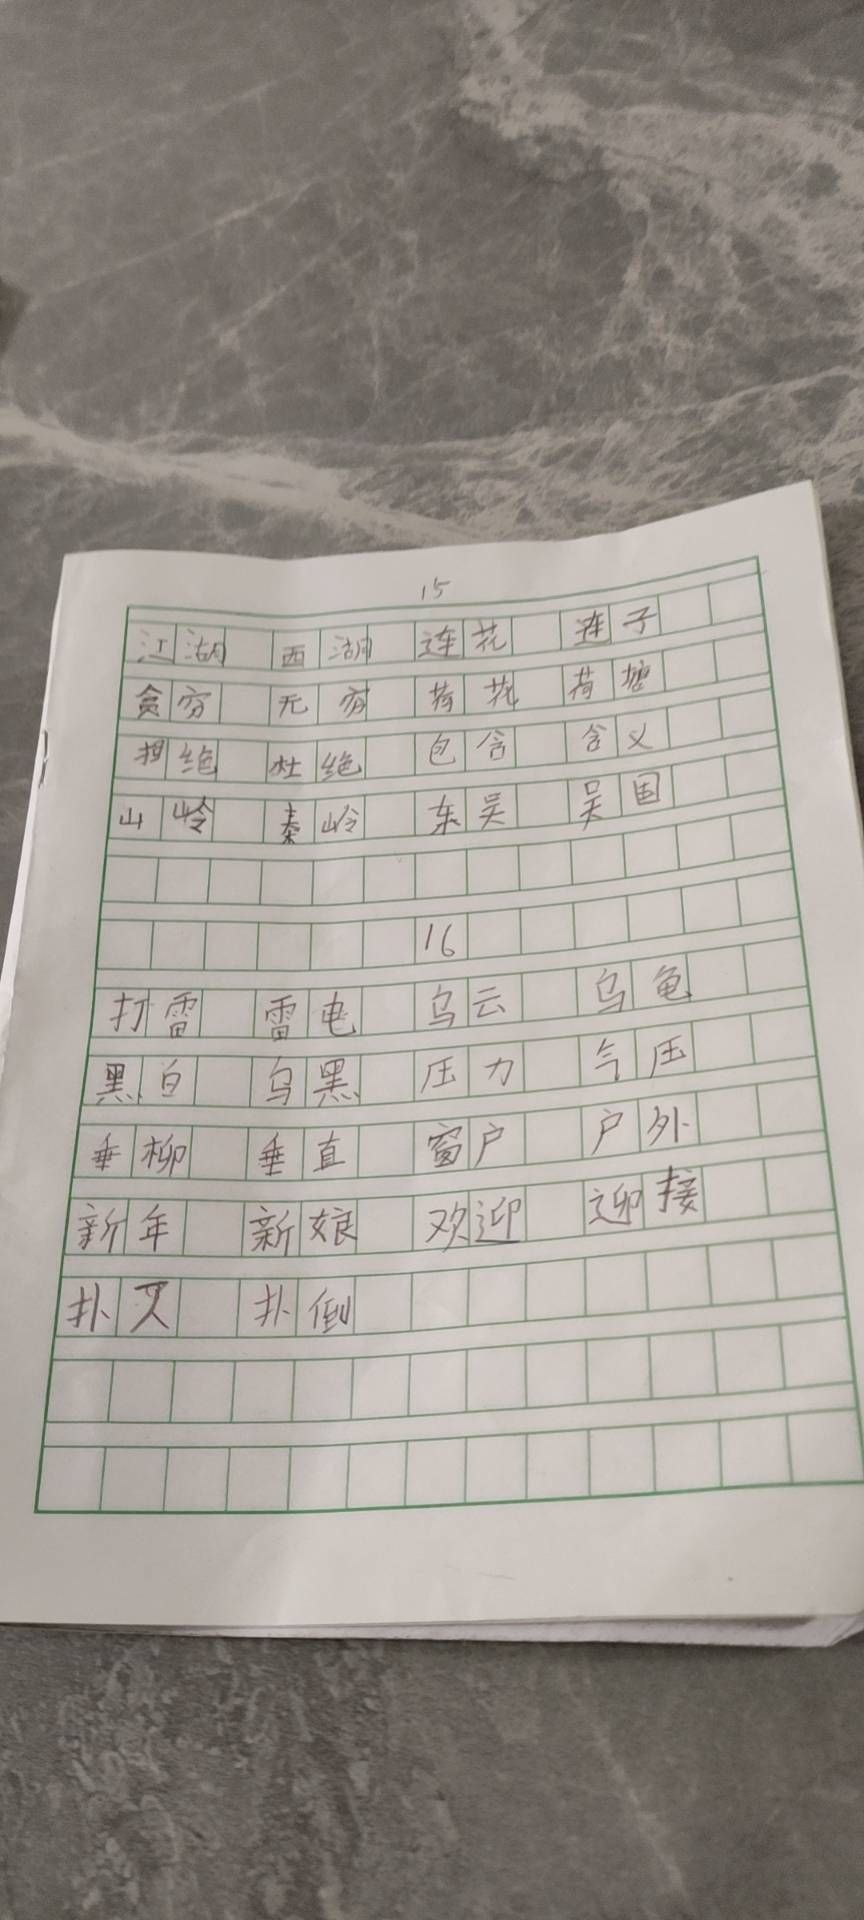 15
江湖 西湖 连花 莲子
贪穷 无穷 荷花 荷塘
拒绝 杜绝 包含 含义
山岭 秦岭 东吴 吴国
16
打雷 雷电 乌云 乌龟
黑白 乌黑 压力 气压
垂柳 垂直 窗户 户外
新年 新娘 欢迎 迎接
扑 扑倒